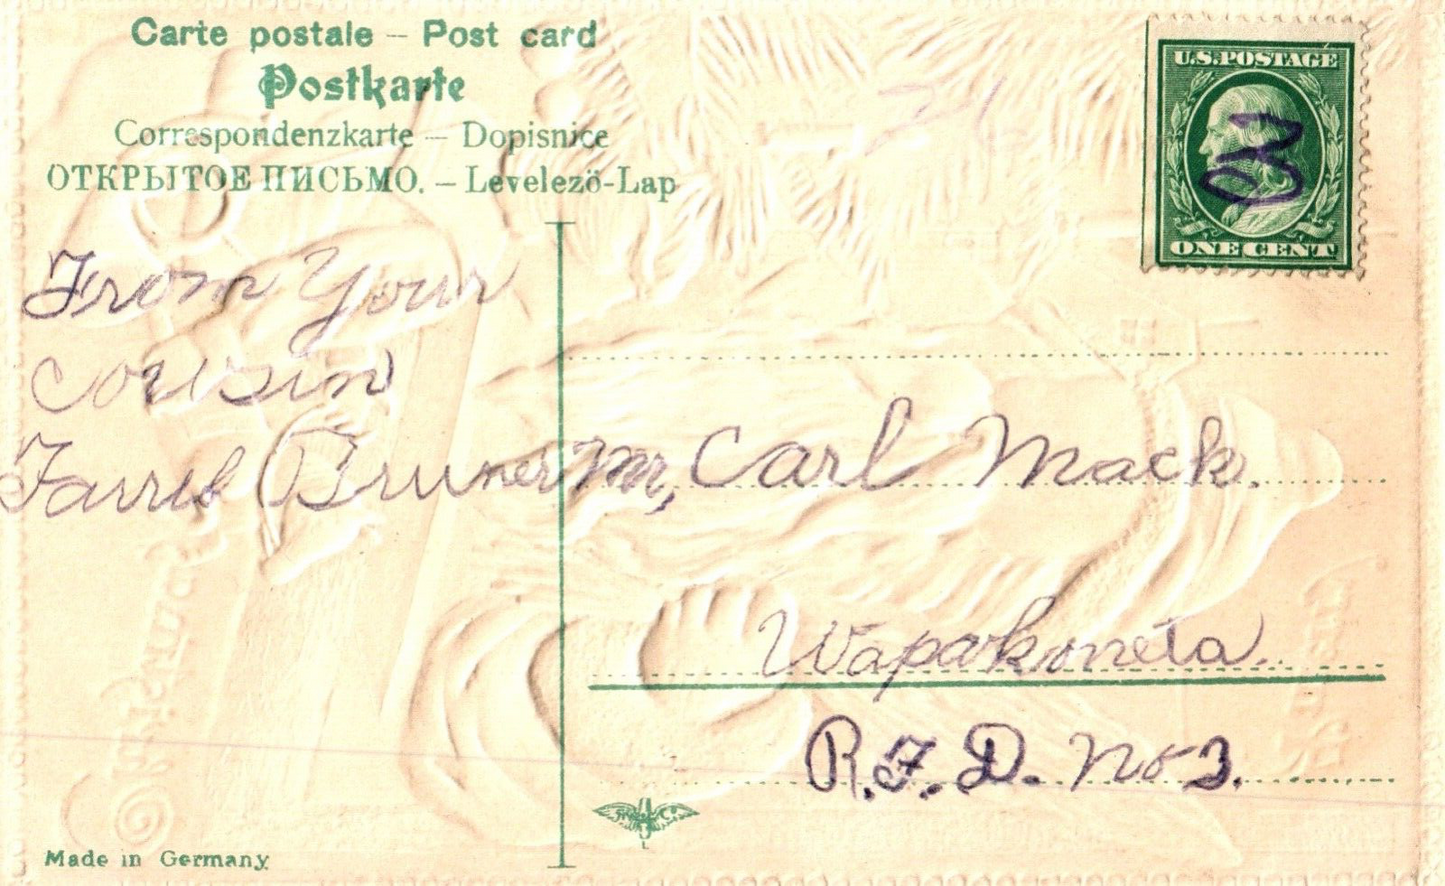 Carte postale – Post card
Postkarte
Correspondenzkarte – Dopisnice
ОТКРЫТОЕ ПИСЬМО. – Levelezö-Lap
U.S. POSTAGE
ONE CENT
From Your
cousin
Bruner
Mr, Carl Mack.
Wapakoneta.
R.F.D. No 3.
Made in Germany.